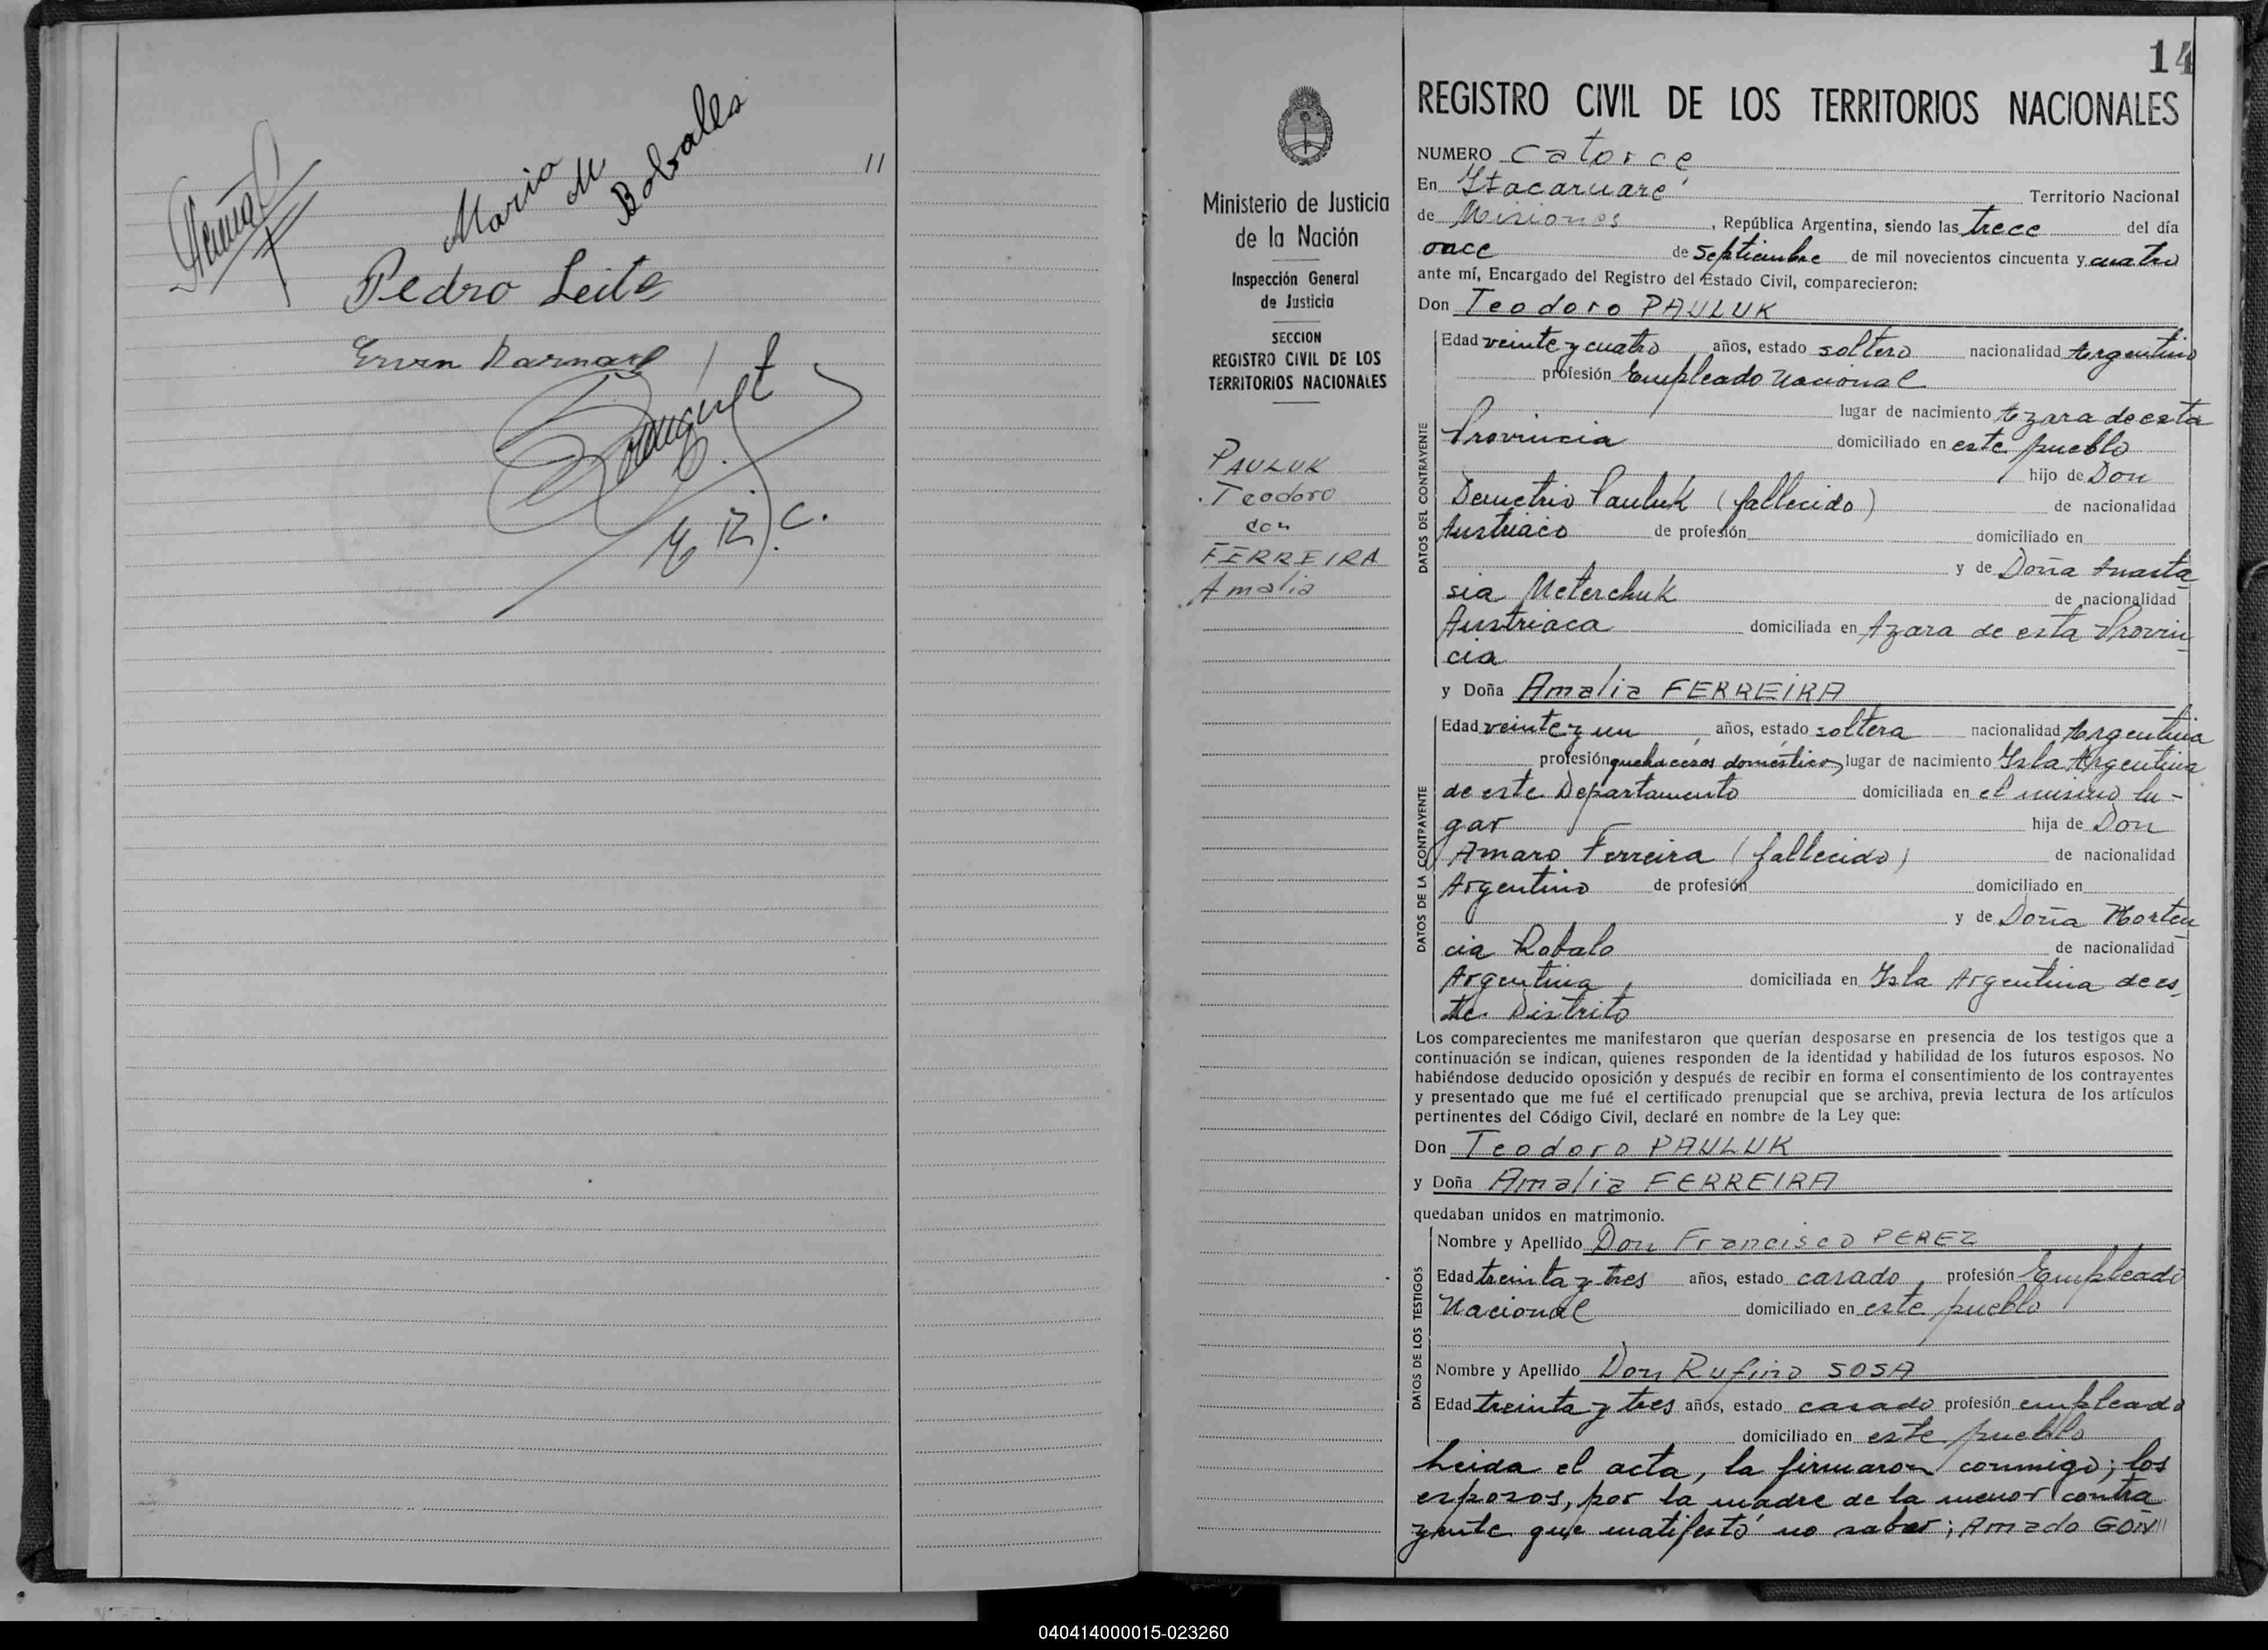 Mario
M
Bobralles
"
Pedro Leite
Erwin
E. R. C.
14
Ministerio de Justicia
de la Nación
Inspección General
de Justicia
SECCION
REGISTRO CIVIL DE LOS
TERRITORIOS NACIONALES
PAULUK
Teodoro
con
FERREIRA
Amalia
REGISTRO CIVIL DE LOS TERRITORIOS NACIONALES
NUMERO Catorce
En Itacaruaré Territorio Nacional
de Misiones, República Argentina, siendo las trece del día
once de septiembre de mil novecientos cincuenta y cuatro
ante mí, Encargado del Registro del Estado Civil, comparecieron:
Don Teodoro PAULUK
DATOS DEL CONTRAYENTE
Edad veinte y cuatro años, estado soltero nacionalidad Argentino
profesión Empleado Nacional
lugar de nacimiento Azara de esta
Provincia domiciliado en este pueblo
hijo de Don
Demetrio Pauluk (fallecido) de nacionalidad
Austriaco de profesión domiciliado en
y de Doña Anasta
sia Meterchuk de nacionalidad
Austriaca domiciliada en Azara de esta Provin
cia
y Doña Amalia FERREIRA
DATOS DE LA CONTRAYENTE
Edad veinte y un años, estado soltera nacionalidad Argentina
profesión quehaceres domésticos lugar de nacimiento Isla Argentina
de este Departamento domiciliada en el mismo lu-
gar hija de Don
Amaro Ferreira (fallecido) de nacionalidad
Argentino de profesión domiciliado en
y de Doña Horten
cia Robalo de nacionalidad
Argentina, domiciliada en Isla Argentina de es
te Distrito
Los comparecientes me manifestaron que querían desposarse en presencia de los testigos que a
continuación se indican, quienes responden de la identidad y habilidad de los futuros esposos. No
habiéndose deducido oposición y después de recibir en forma el consentimiento de los contrayentes
y presentado que me fué el certificado prenupcial que se archiva, previa lectura de los artículos
pertinentes del Código Civil, declaré en nombre de la Ley que:
Don Teodoro PAULUK
y Doña Amalia FERREIRA
quedaban unidos en matrimonio.
DATOS DE LOS TESTIGOS
Nombre y Apellido Don Francisco PEREZ
Edad treinta y tres años, estado casado, profesión Empleado
Nacional domiciliado en este pueblo
Nombre y Apellido Don Rufino SOSA
Edad treinta y tres años, estado casado profesión empleado
domiciliado en este pueblo
Leida el acta, la firmaron conmigo; los
esposos, por la madre de la menor contra
yente que matifestó no saber; Amado GOIN"
040414000015-023260